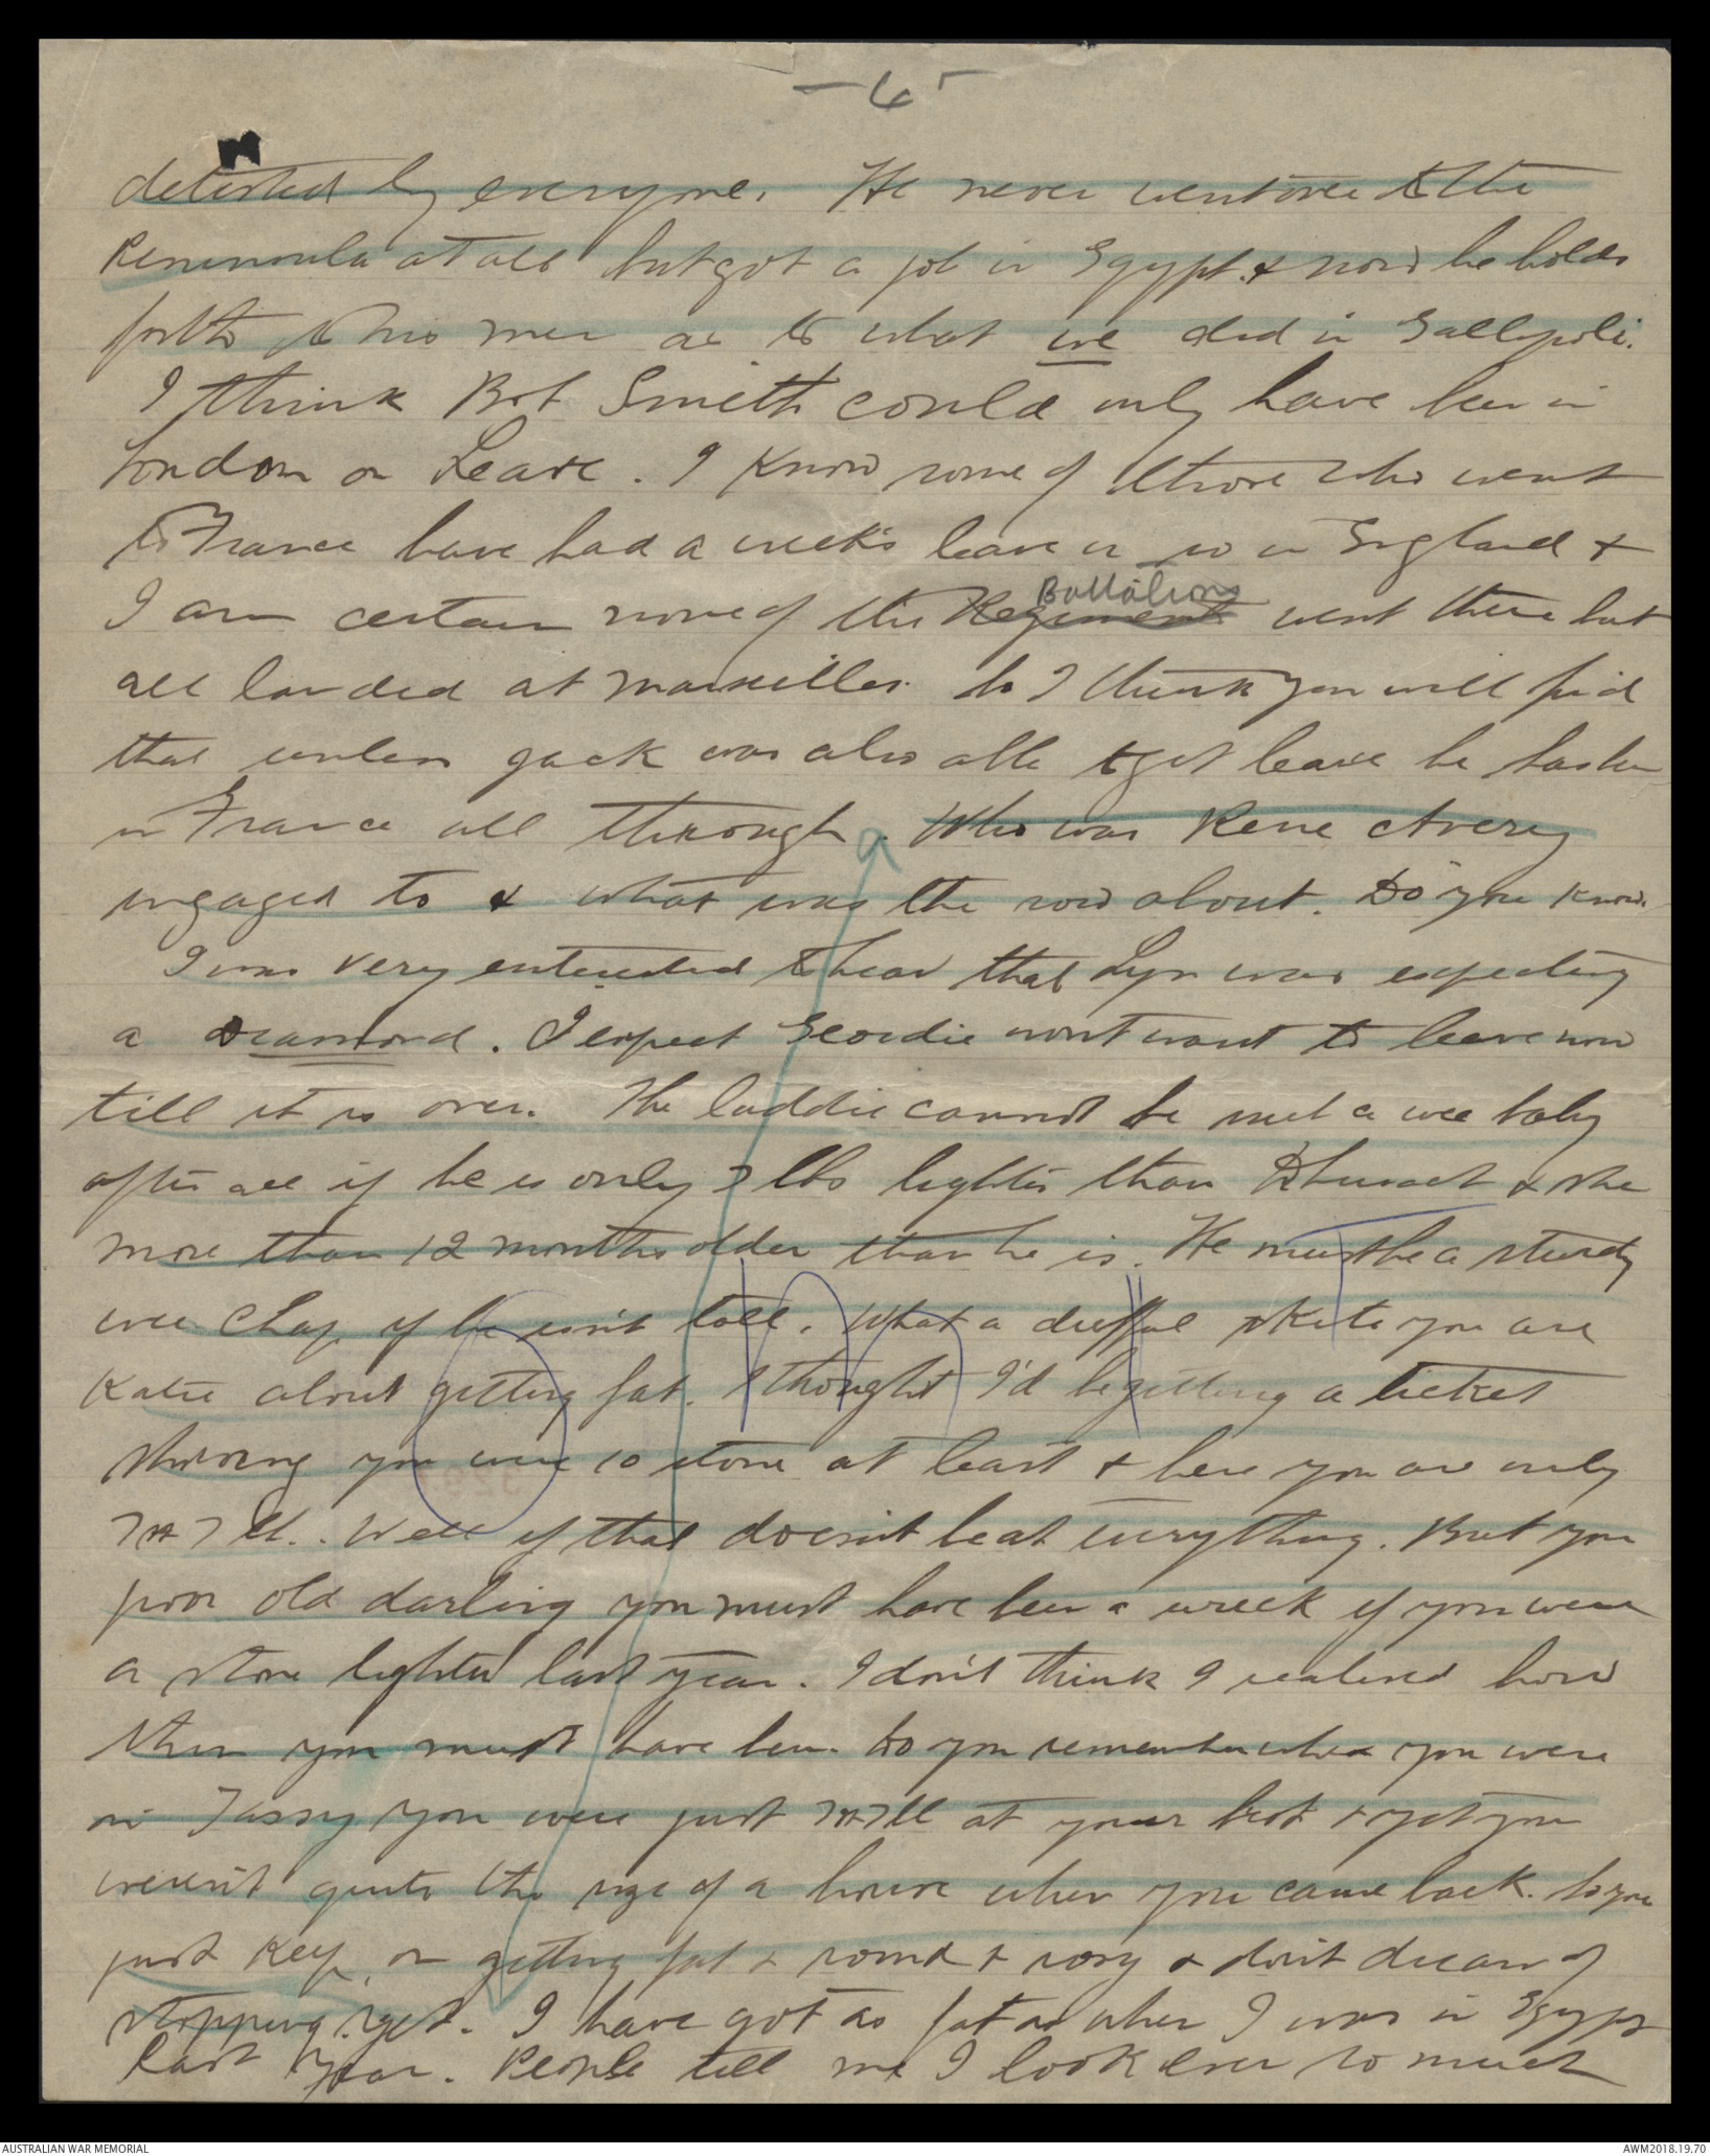 - 6 -
detested by everyone. He never went over to the
Peninsula at all but got a job in Egypt. & now he holds
forth to his men as to what we did in Gallipoli.
I think Bob Smith could only have been in
London on Leave. I know some of those who went
to France have had a week's leave or so in England &
I am certain none of the Regiments Battalions went there but
all landed at Marseilles. So I think you will find
that unless Jack was also able to get leave he has been
in France all through. Who was Rene Avery
engaged to & what was the row about. Do you know.
I was very interested to hear that Lyn was expecting
a diamond. I expect Geordie wont want to leave now
till it is over. The laddie cannot be such a wee baby
after all if he is only 7 lbs lighter than & she
more than 12 months older than he is. He must be a sturdy
wee chap if he isn't tall. What a dreffful skite you are
Katie about getting fat. I thought I'd be getting a ticket
showing you were 10 stone at least & here you are only
7 st 7 lb. Well if that doesn't beat everything. But you
poor old darling you must have been a wreck if you were
a stone lighter last year. I don't think I realised how
thin you must have been. Do you remember when you were
in Tassy you were just 7 st 7 lb at your best & yet you
weren't quite the size of a house when you came back. So you
just keep on getting fat & round & rosy & don't dream of
stopping yet. I have got as fat as when I was in Egypt
last year. People tell me I look ever so much
AUSTRALIAN WAR MEMORIAL
AWM2018.19.70